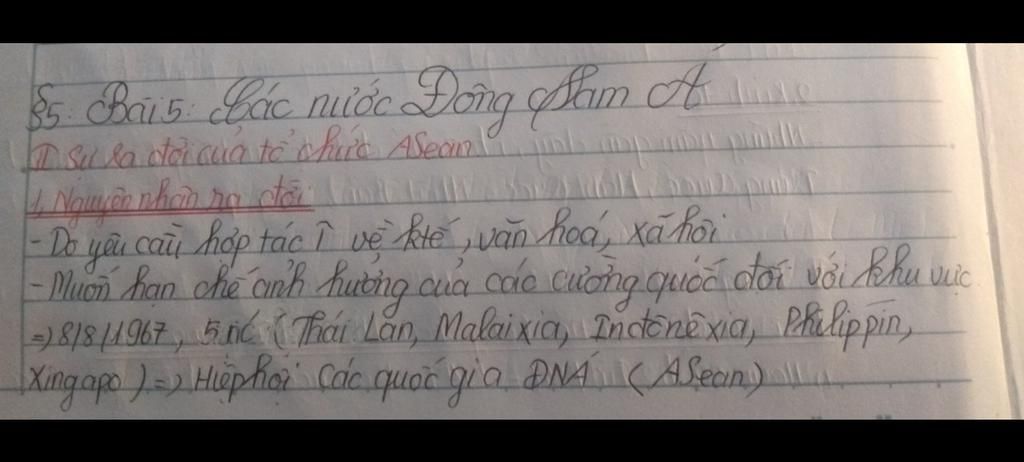 §5: Bài 5: Các nước Đông Nam Á
II Sự ra đời của tổ chức ASean
1, Nguyên nhân ra đời:
- Do yêu cầu hợp tác về ktế, văn hoá, xã hội
- Muốn hạn chế ảnh hưởng của các cường quốc đối với khu vực
=> 8/8/1967, 5 nc (Thái Lan, Malaixia, Inđônêxia, Philippin,
Xingapo) => Hiệp hội các quốc gia ĐNÁ (ASean)